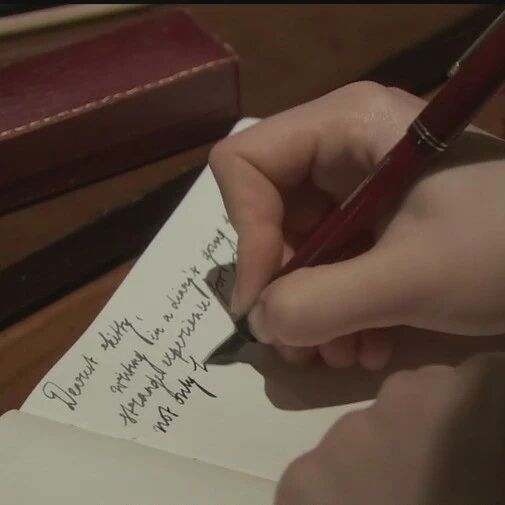 Dearest kitty,
writing in a diary's going
strange experience for
not only